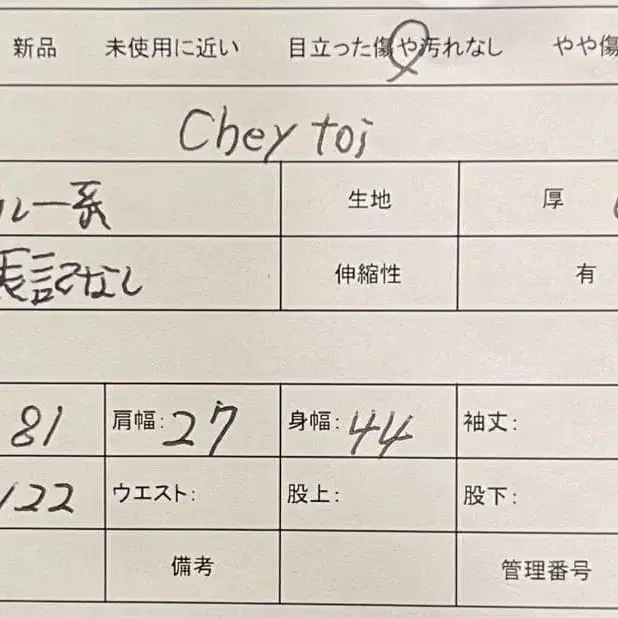 新品 未使用に近い 目立った傷や汚れなし やや傷
Chey toi
ルー系 生地 厚
表記なし 伸縮性 有
81 肩幅: 27 身幅: 44 袖丈:
122 ウエスト: 股上: 股下:
備考 管理番号